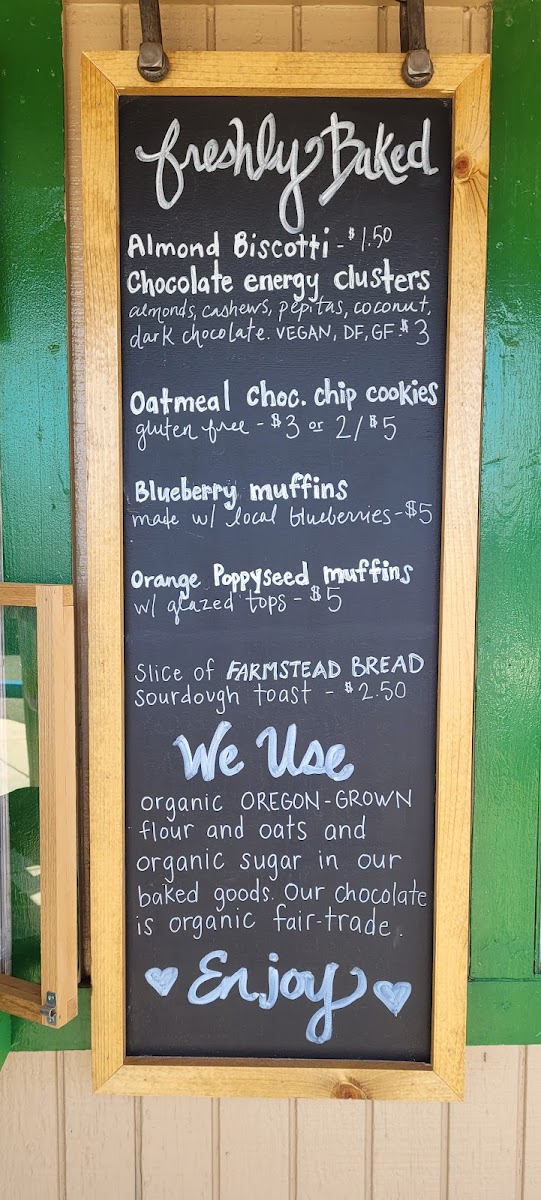 freshly Baked
Almond Biscotti - $1.50
Chocolate energy clusters
almonds, cashews, pepitas, coconut,
dark chocolate. VEGAN, DF, GF. $3
Oatmeal choc. chip cookies
gluten free - $3 or 2/$5
Blueberry muffins
made w/ local blueberries - $5
Orange Poppyseed muffins
w/ glazed tops - $5
Slice of FARMSTEAD BREAD
sourdough toast - $2.50
We Use
organic OREGON-GROWN
flour and oats and
organic sugar in our
baked goods. Our chocolate
is organic fair-trade.
Enjoy